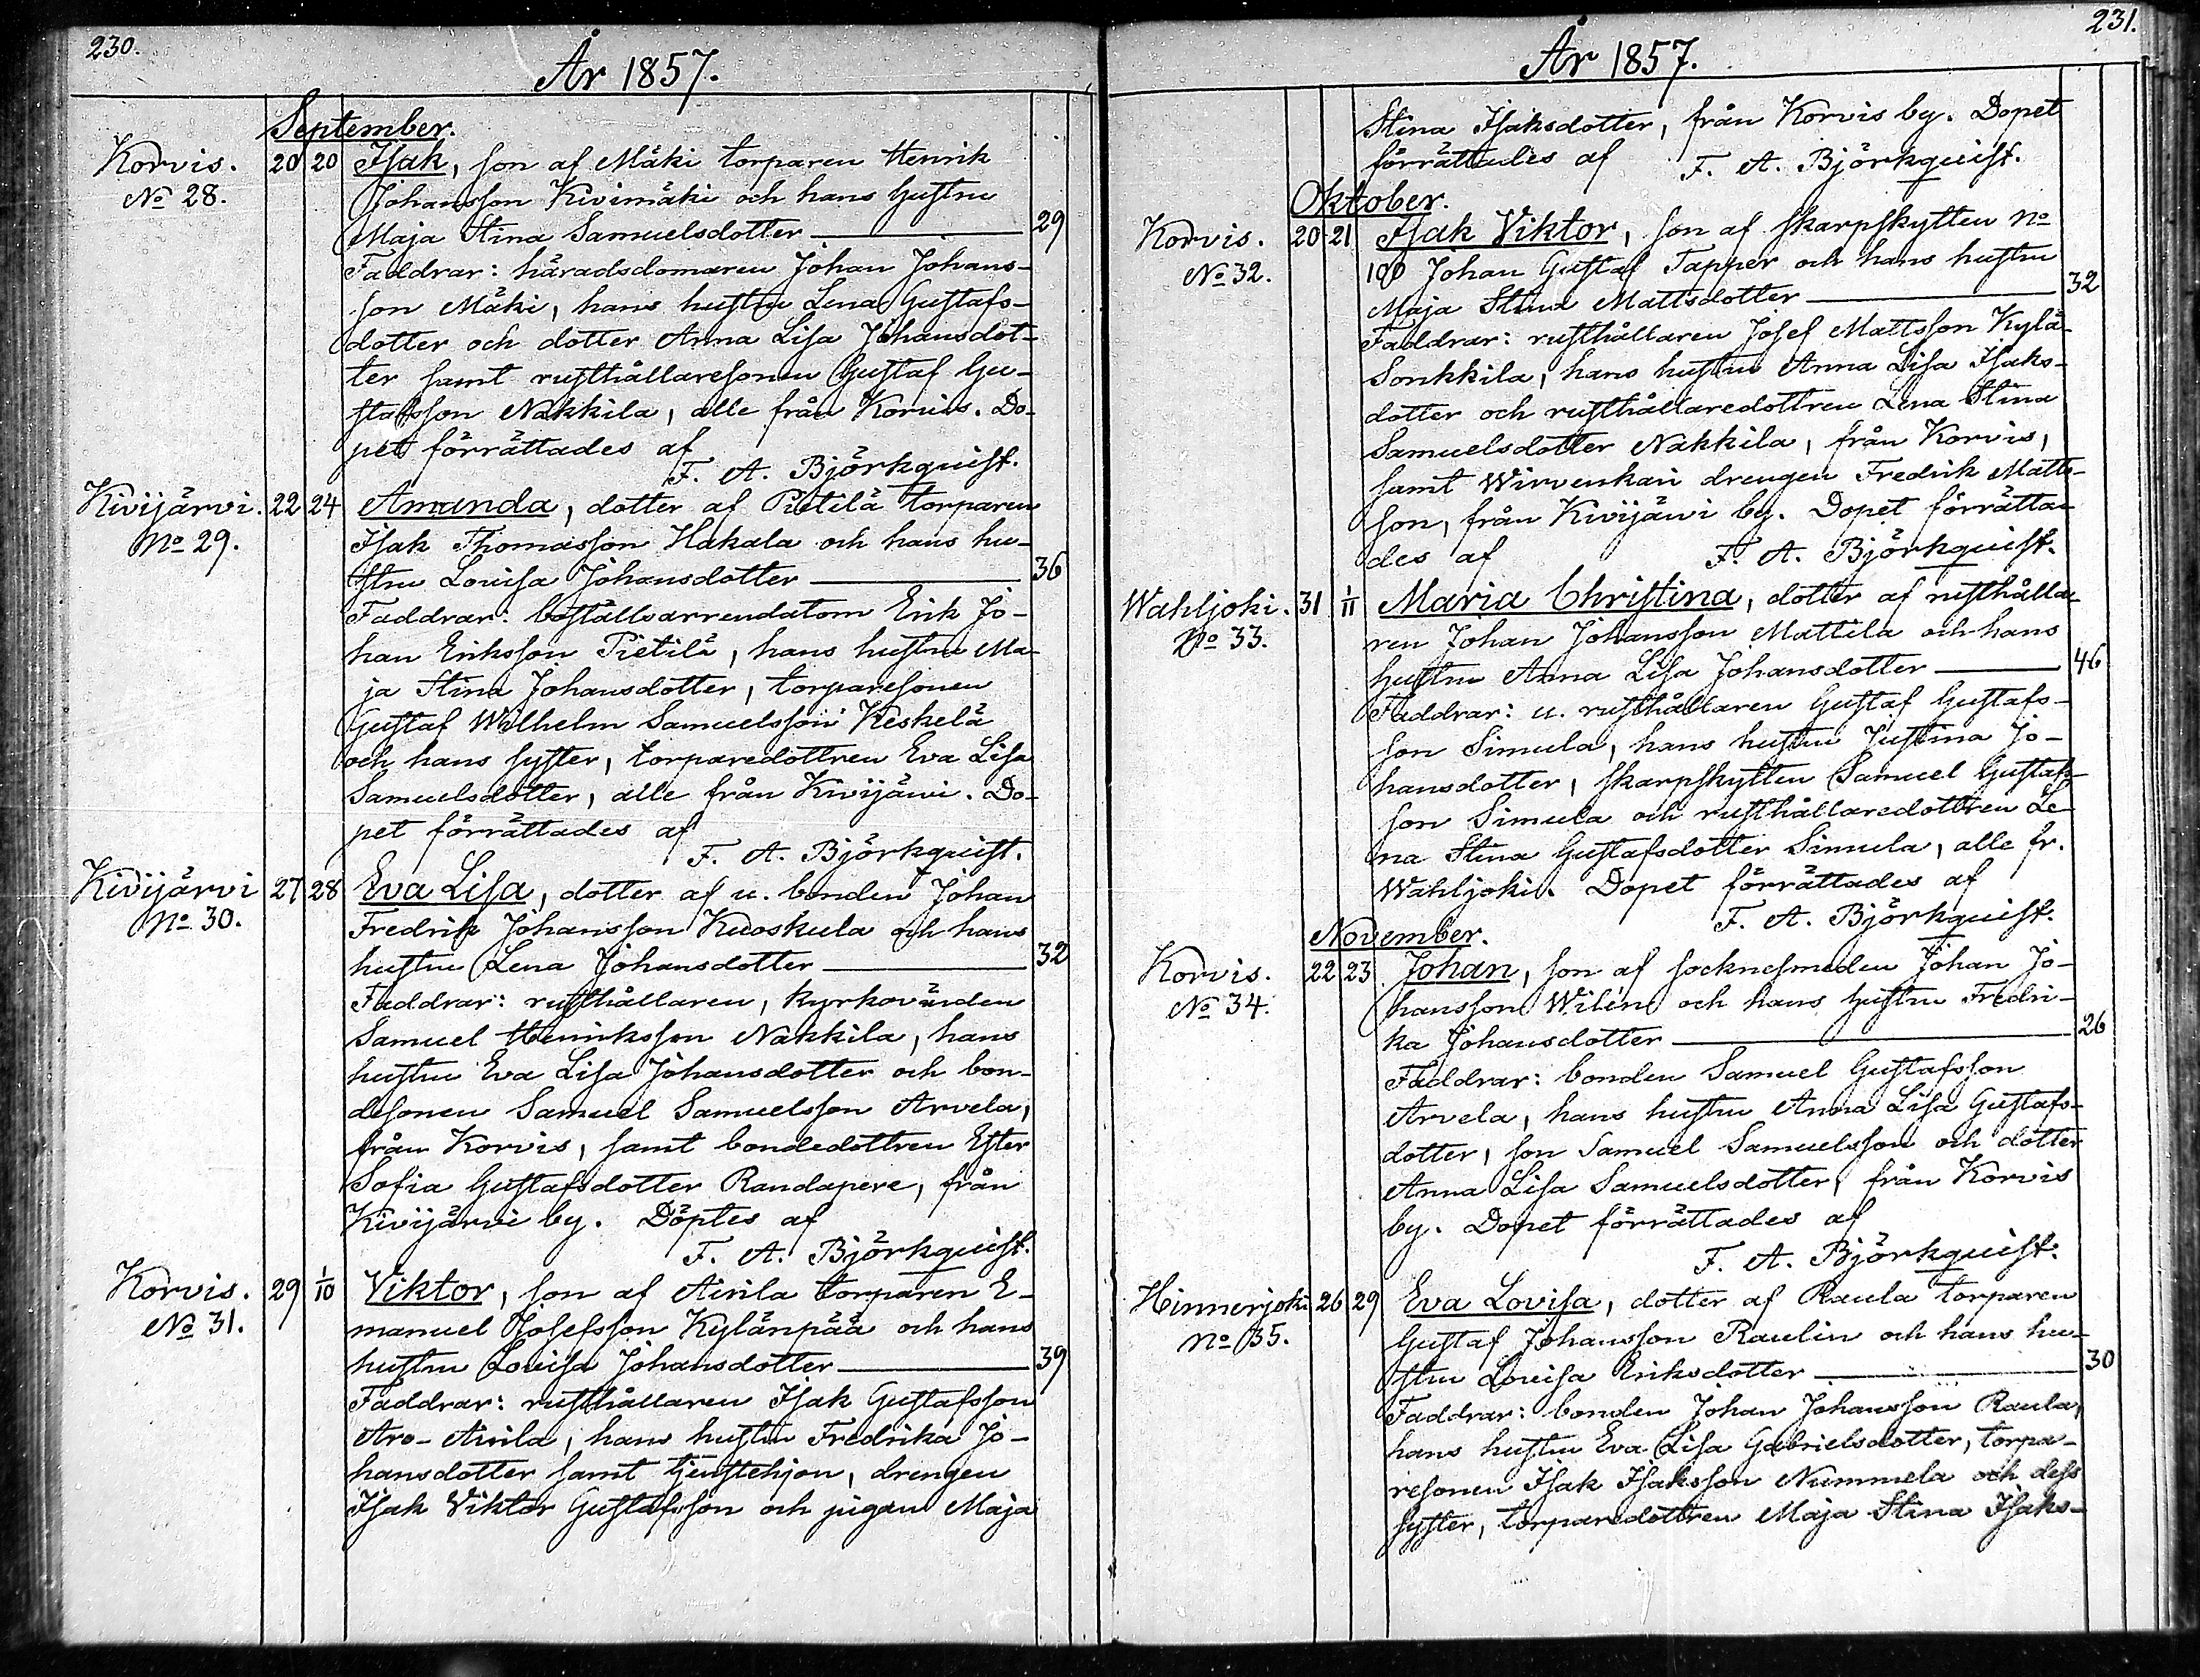 230.
År 1857.
September.
Korvis. 20 20 Isak, son af Mäki torparen Henrik
No 28. Johansson Kivimäki och hans hustru
Maja Stina Samuelsdotter 29
Faddrar: häradsdomaren Johan Johans-
son Mäki, hans hustru Lena Gustafs-
dotter och dotter Anna Lisa Johansdot-
ter samt rusthållaresonen Gustaf Gu-
stafsson Nakkila, alle från Korvis. Do-
pet förrättades af
F. A. Björkquist.
Kivijärvi. 22 24 Amanda, dotter af Pietilä torparen
No 29. Isak Thomasson Hakala och hans hu-
stru Lovisa Johansdotter 36
Faddrar: boställsarrendatorn Erik Jo-
han Eriksson Pietilä, hans hustru Ma-
ja Stina Johansdotter, torparesonen
Gustaf Wilhelm Samuelsson Keskelä
och hans syster, torparedottren Eva Lisa
Samuelsdotter, alle från Kivijäwi. Do-
pet förrättades af
F. A. Björkquist.
Kivijärvi 27 28 Eva Lisa, dotter af u. bonden Johan
No 30. Fredrik Johansson Kuoskula och hans
hustru Lena Johansdotter 32
Faddrar: rusthållaren, kyrkovärden
Samuel Henriksson Nakkila, hans
hustru Eva Lisa Johansdotter och bon-
desonen Samuel Samuelsson Arvela,
från Korvis, samt bondedottren Ester
Sofia Gustafsdotter Randapere, från
Kivijärvi by. Döptes af
F. A. Björkquist.
Korvis. 29 1/10 Viktor, son af Airila torparen E-
No 31. manuel Josefsson Kylänpää och hans
hustru Lovisa Johansdotter 39
Faddrar: rusthållaren Isak Gustafsson
Aro-Airila, hans hustru Fredrika Jo-
hansdotter samt tjenstehjon, drengen
Isak Viktor Gustafsson och pigan Maja
231.
År 1857.
Stina Isaksdotter, från Korvis by. Dopet
förrättades af F. A. Björkquist.
Oktober.
Korvis. 20 21 Isak Viktor, son af skarpskytten No
No 32. 100 Johan Gustaf Tapper och hans hustru
Maja Stina Mattsdotter 32
Faddrar: rusthållaren Josef Mattsson Kylä-
Sonkkila, hans hustru Anna Lisa Isaks-
dotter och rusthållaredottren Lena Stina
Samuelsdotter Nakkila, från Korvis,
samt Wirvenkari drengen Fredrik Matts-
son, från Kivijäwi by. Dopet förrätta-
des af F. A. Björkquist.
Wahljoki. 31 1/11 Maria Christina, dotter af rusthålla-
No 33. ren Johan Johansson Mattila och hans
hustru Anna Lisa Johansdotter 46
Faddrar: u. rusthållaren Gustaf Gustafs-
son Simula, hans hustru Justina Jo-
hansdotter, skarpskytten Samuel Gustafs-
son Simula och rusthållaredottren Le-
na Stina Gustafsdotter Simula, alle fr.
Wahljoki. Dopet förrättades af
F. A. Björkquist.
November.
Korvis. 22 23 Johan, son af socknesmeden Johan Jo-
No 34. hansson Wilén och hans hustru Fredri-
ka Johansdotter 26
Faddrar: bonden Samuel Gustafsson
Arvela, hans hustru Anna Lisa Gustafs-
dotter, son Samuel Samuelsson och dotter
Anna Lisa Samuelsdotter, från Korvis
by. Dopet förrättades af
F. A. Björkquist.
Hinnerjoki 26 29 Eva Lovisa, dotter af Raula torparen
No 35. Gustaf Johansson Raulin och hans hu-
stru Lovisa Eriksdotter 30
Faddrar: bonden Johan Johansson Raula,
hans hustru Eva Lisa Gabrielsdotter, torpa-
resonen Isak Isaksson Nummela och dess
syster, torparedottren Maja Stina Isaks-